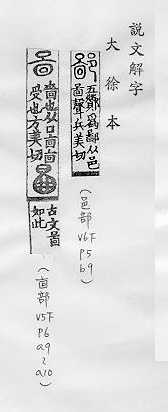 説文解字
大徐本
鄙
五酇爲鄙从邑
啚聲兵美切
(邑部 V6下 P5 b9)
啚
嗇也从口㐭㐭
受也方美切
古文啚
如此
(㐭部 V5下 P6 a9~a10)